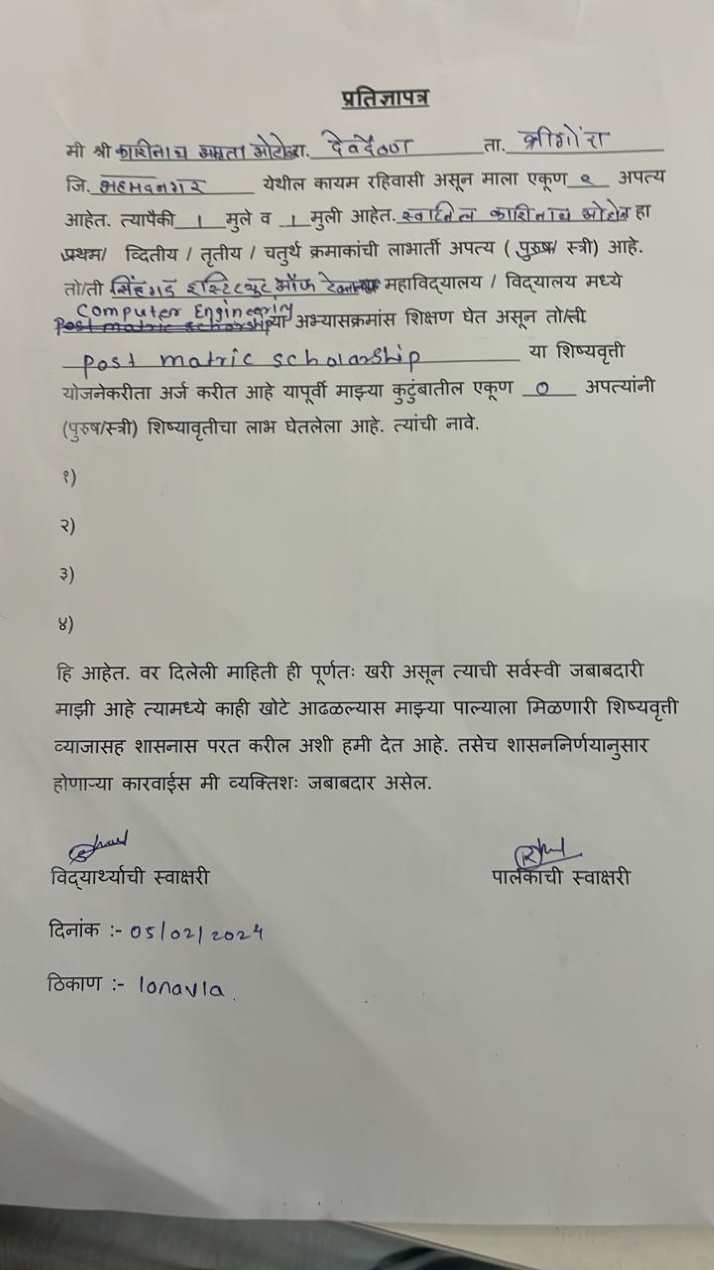 प्रतिज्ञापत्र
मी श्री काशिनाथ रा. देवदैठण ता. श्रीगोंदा
जि. अहमदनगर येथील कायम रहिवासी असून माला एकूण २ अपत्य
आहेत. त्यापैकी 1 मुले व 1 मुली आहेत. स्वप्निल काशिनाथ हा
प्रथम/ व्दितीय / तृतीय / चतुर्थ क्रमाकांची लाभार्ती अपत्य ( पुरुष/ स्त्री) आहे.
तो/ती सिंहगड इन्स्टिट्यूट ऑफ महाविद्यालय / विद्यालय मध्ये
Computer Engineering
Post matric scholarship या अभ्यासक्रमांस शिक्षण घेत असून तो/ती
Post matric scholarship या शिष्यवृत्ती
योजनेकरीता अर्ज करीत आहे यापूर्वी माझ्या कुटुंबातील एकूण 0 अपत्यांनी
(पुरुष/स्त्री) शिष्यावृतीचा लाभ घेतलेला आहे. त्यांची नावे.
१)
२)
३)
४)
हि आहेत. वर दिलेली माहिती ही पूर्णतः खरी असून त्याची सर्वस्वी जबाबदारी
माझी आहे त्यामध्ये काही खोटे आढळल्यास माझ्या पाल्याला मिळणारी शिष्यवृत्ती
व्याजासह शासनास परत करील अशी हमी देत आहे. तसेच शासननिर्णयानुसार
होणाऱ्या कारवाईस मी व्यक्तिशः जबाबदार असेल.
विद्यार्थ्याची स्वाक्षरी पालकाची स्वाक्षरी
दिनांक :- 05/02/2024
ठिकाण :- lonavla.